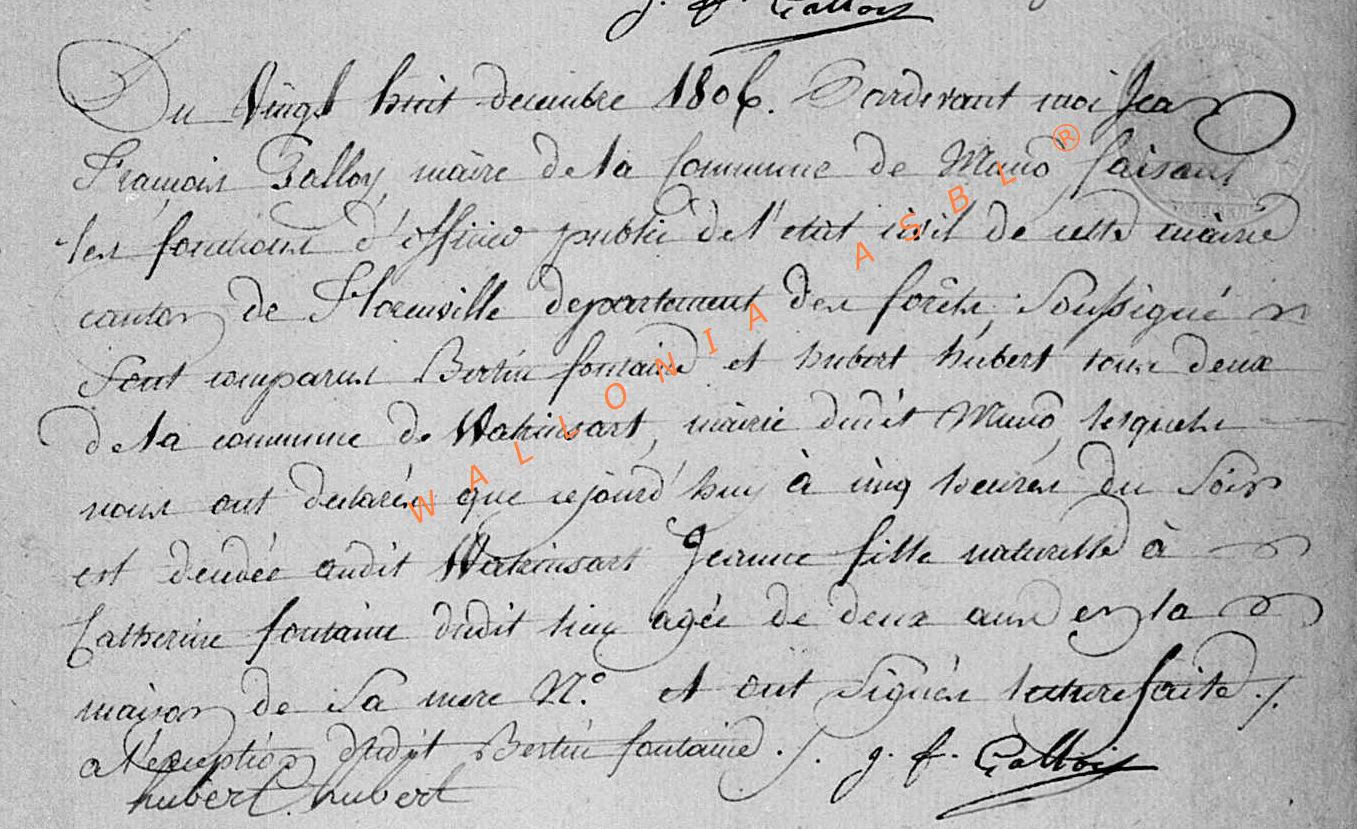 J. f. Gallois
Du Vingt huit decembre 1806. Pardevant moi Jean
François Galloy, maire de la Commune de Muno faisant
les fonctions d'officier public de l'etat civil de cette mairie
canton de Florenville departement des forêts, Soussigné
sont comparus Bertin fontaine et hubert hubert tous deux
de la commune de Watrinsart, mairie dudit Muno, lesquels
nous ont declarés que cejourd'huy à cinq heures du Soir
est decedée audit Watrinsart Jeanne fille naturelle à
Catherine fontaine dudit lieu agée de deux ans en la
maison de Sa mere N.º et ont Signés lecture faite ./.
a l'exception dudit Bertin fontaine ./. j. f. Gallois
hubert hubert
WALLONIA ASBL ®